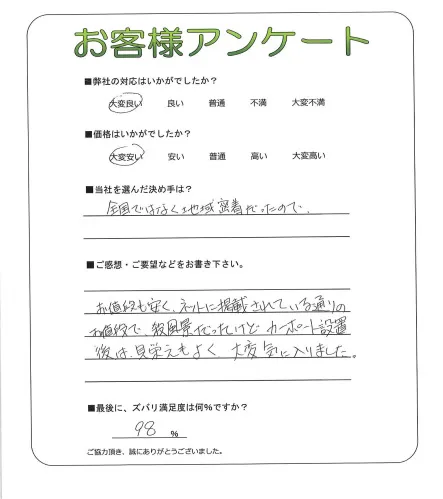 お客様アンケート
■弊社の対応はいかがでしたか？
大変良い 良い 普通 不満 大変不満
■価格はいかがでしたか？
大変安い 安い 普通 高い 大変高い
■当社を選んだ決め手は？
全国ではなく地域密着だったので、
■ご感想・ご要望などをお書き下さい。
お値段も安く、ネットに掲載されている通りの
お値段で、殺風景だったけど カーポート設置
後は、見栄えもよく 大変気に入りました。
■最後に、ズバリ満足度は何％ですか？
98 ％
ご協力頂き、誠にありがとうございました。